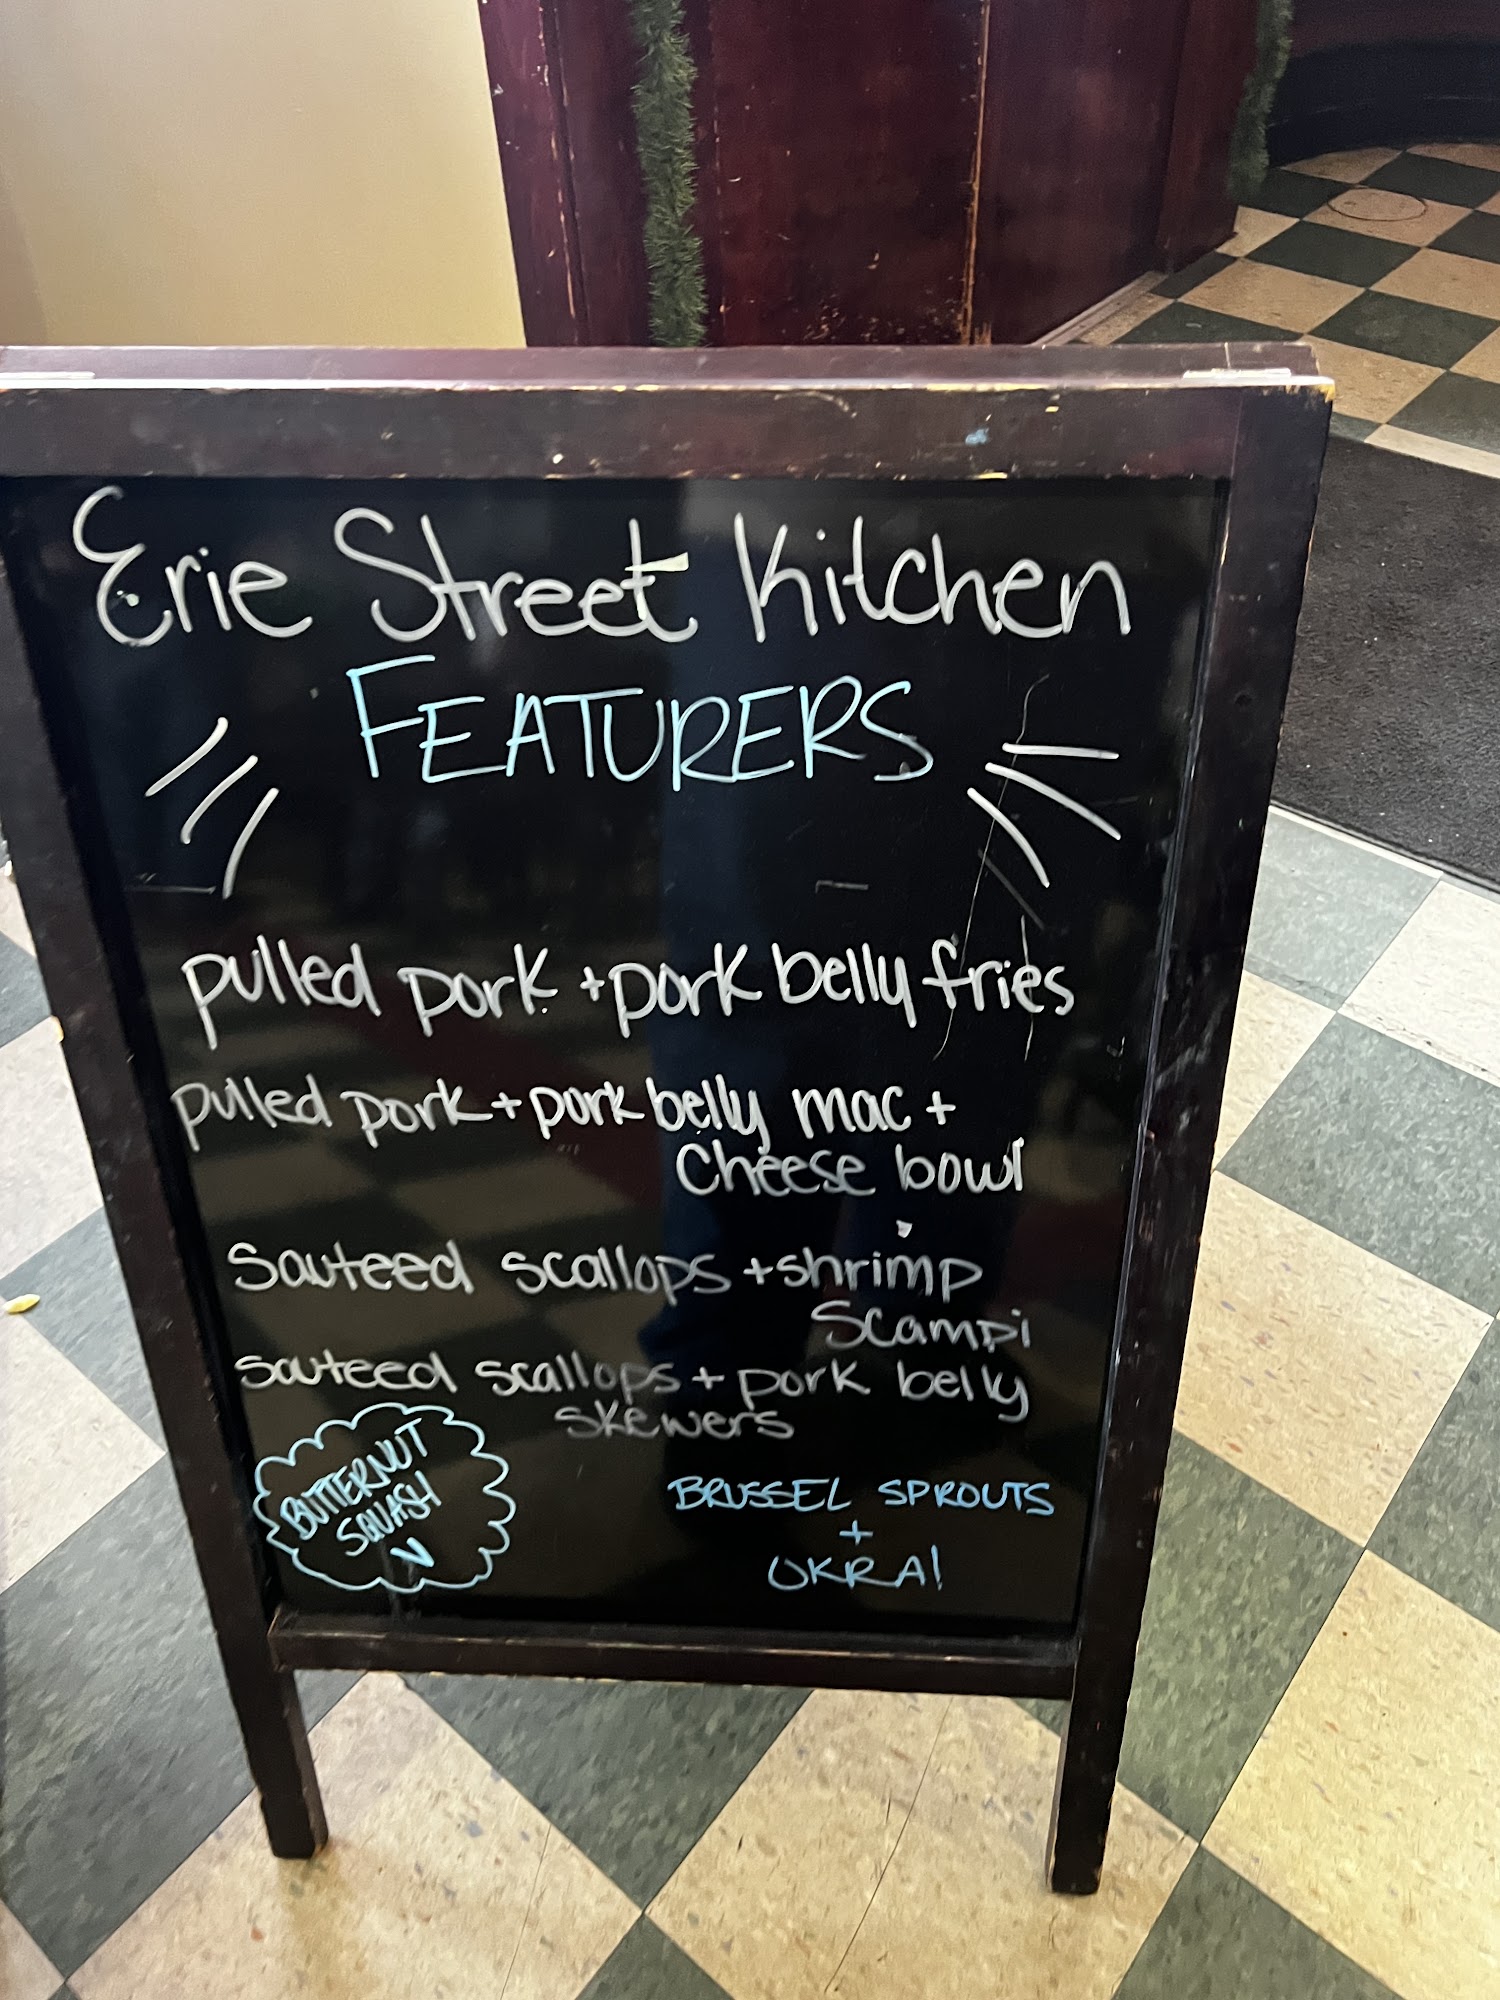 Erie Street Kitchen
FEATURERS
pulled pork + pork belly fries
pulled pork + pork belly mac +
Cheese bowl
Sauteed scallops + shrimp
Scampi
Sauteed scallops + pork belly
skewers
BUTTERNUT
SQUASH
BRUSSEL SPROUTS
+
OKRA!